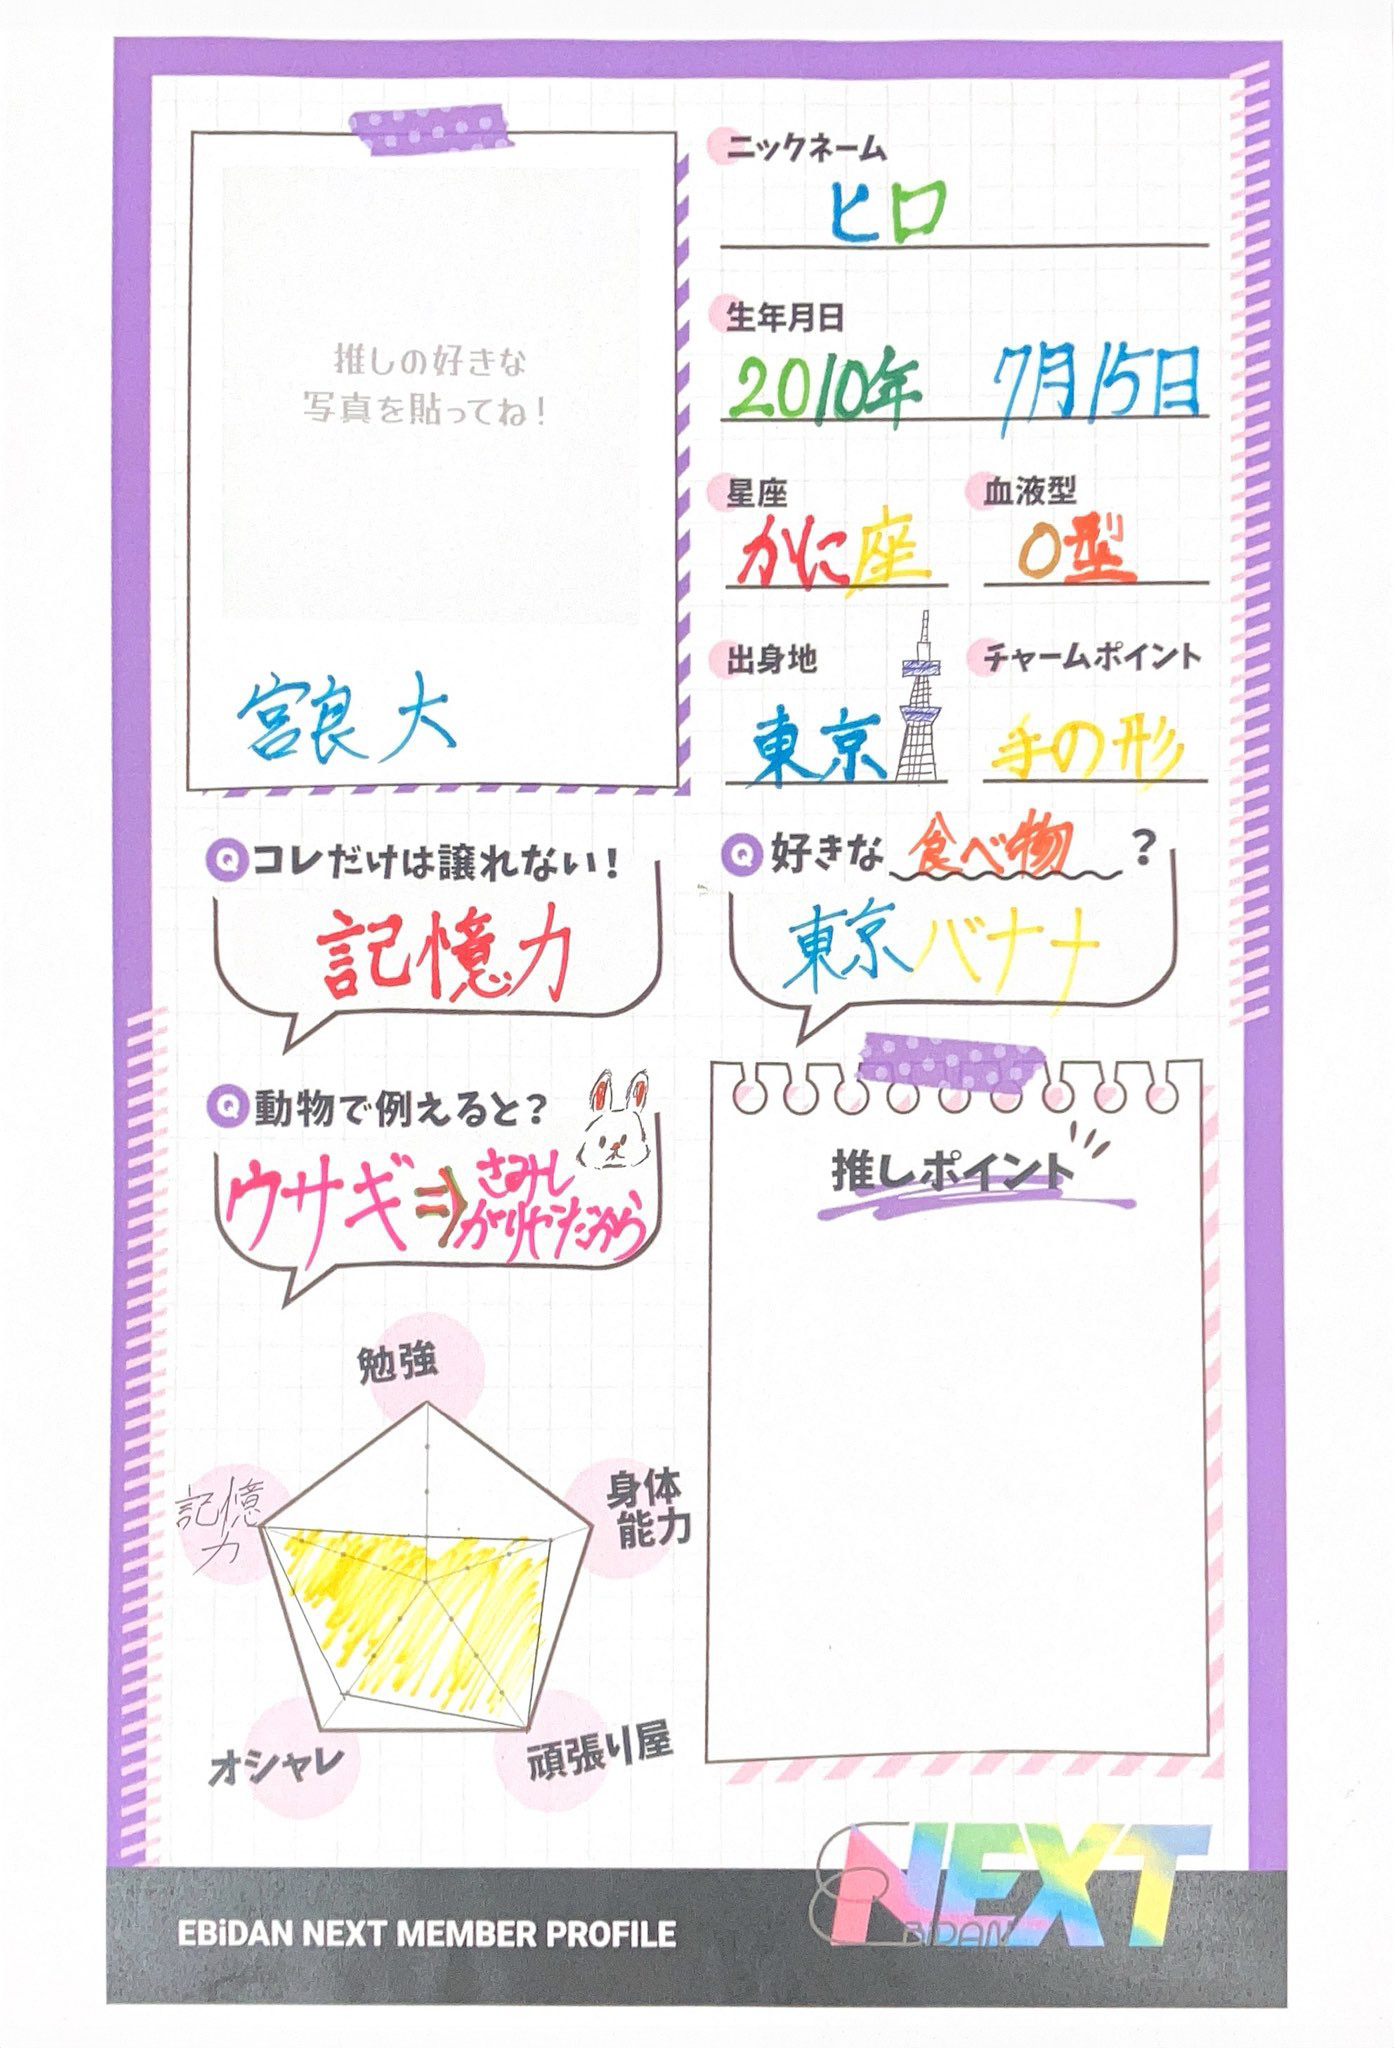 推しの好きな
写真を貼ってね!
宮良 大
ニックネーム
ヒロ
生年月日
2010年 7月15日
星座
かに座
血液型
O型
出身地
東京
チャームポイント
手の形
Q コレだけは譲れない!
記憶力
Q 好きな 食べ物 ?
東京バナナ
Q 動物で例えると?
ウサギ⇒さみし
がりやだから
推しポイント
勉強
身体
能力
頑張り屋
オシャレ
記憶
力
EBiDAN NEXT MEMBER PROFILE
NEXT
EBiDAN